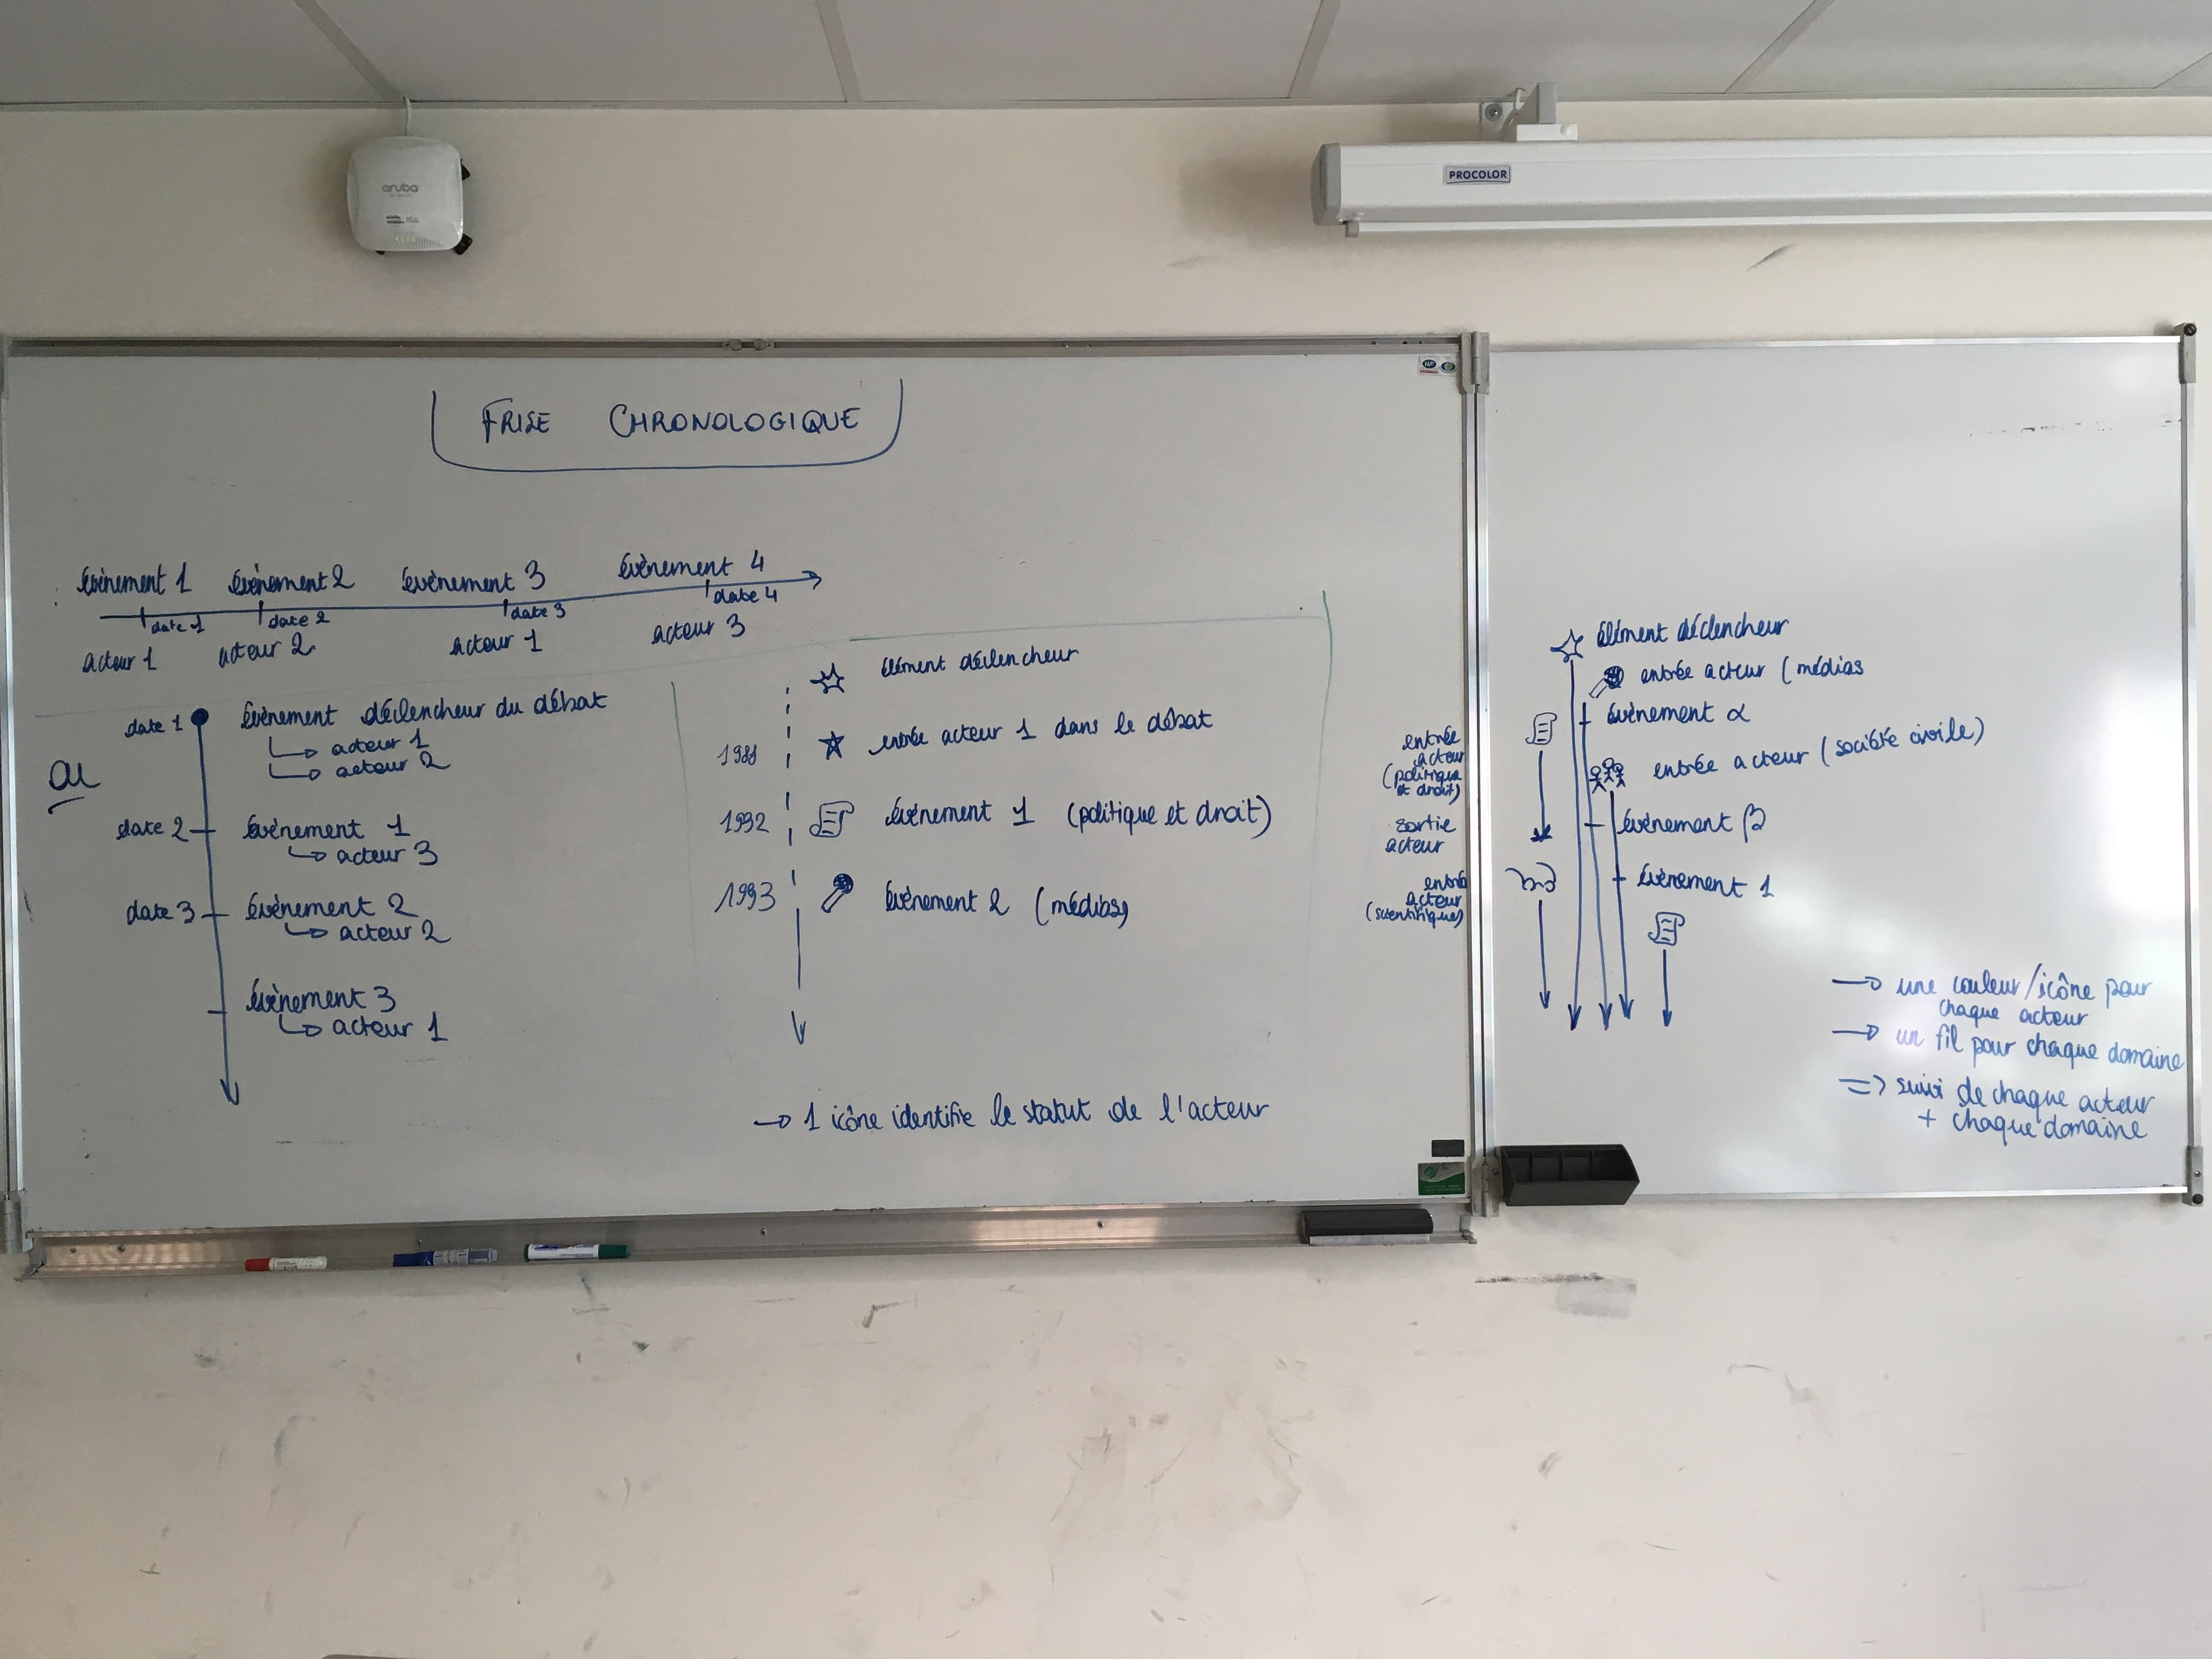 aruba
PROCOLOR
FRISE CHRONOLOGIQUE
évènement 1 évènement 2 évènement 3 évènement 4
date 1 date 2 date 3 date 4
acteur 1 acteur 2 acteur 1 acteur 3
ou
date 1 évènement déclencheur du débat
acteur 1
acteur 2
date 2 évènement 1
acteur 3
date 3 évènement 2
acteur 2
évènement 3
acteur 1
élément déclencheur
entrée acteur 1 dans le débat
1992 évènement 1 (politique et droit)
1993 évènement 2 (médias)
→ 1 icône identifie le statut de l'acteur
entrée
acteur
(politique
et droit)
sortie
acteur
entrée
acteur
(scientifique)
élément déclencheur
entrée acteur (médias
évènement α
entrée acteur (société civile)
évènement β
évènement 1
→ une couleur/icône pour
chaque acteur
→ un fil pour chaque domaine
=> suivi de chaque acteur
+ chaque domaine